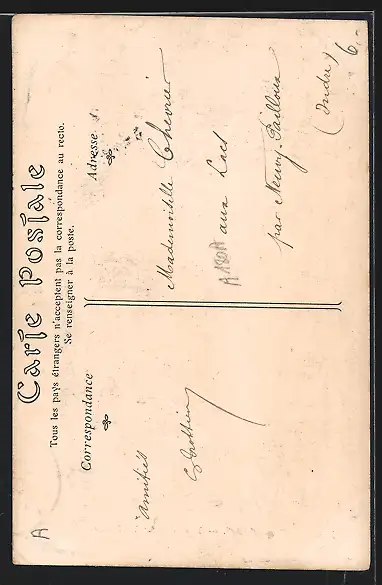 Carte Postale
Tous les pays étrangers n'acceptent pas la correspondance au recto.
Se renseigner à la poste.
Correspondance
Adresse
Amitiés
Mademoiselle Chevrier
aux Lacs
par Neuvy-Pailloux
(Indre)
6,-
A